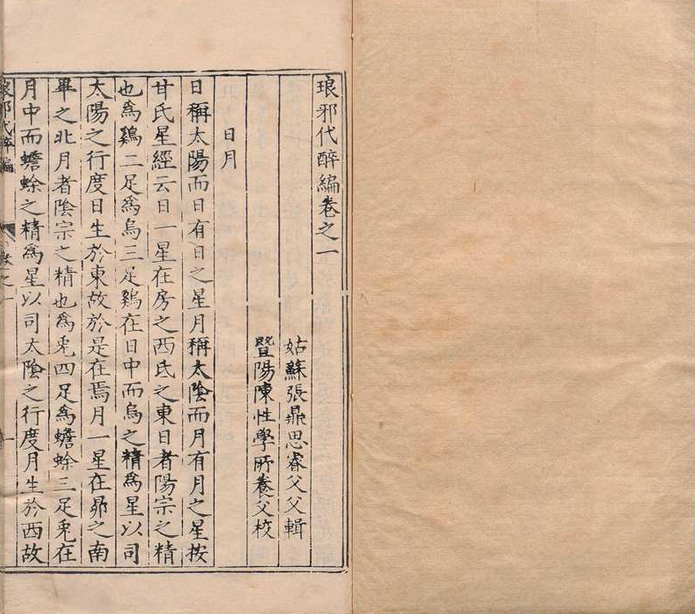 琅邪代醉編卷之一
姑蘇張鼎思睿父父輯
暨陽陳性學所養父校
日月
日稱太陽而日有日之星月稱太陰而月有月之星按
甘氏星經云日一星在房之西氐之東日者陽宗之精
也為鷄二足為烏三足鷄在日中而烏之精為星以司
太陽之行度日生於東故於是在焉月一星在昴之南
畢之北月者陰宗之精也為兎四足為蟾蜍三足兎在
月中而蟾蜍之精為星以司太陰之行度月生於西故
琅邪代醉編
卷之一
一